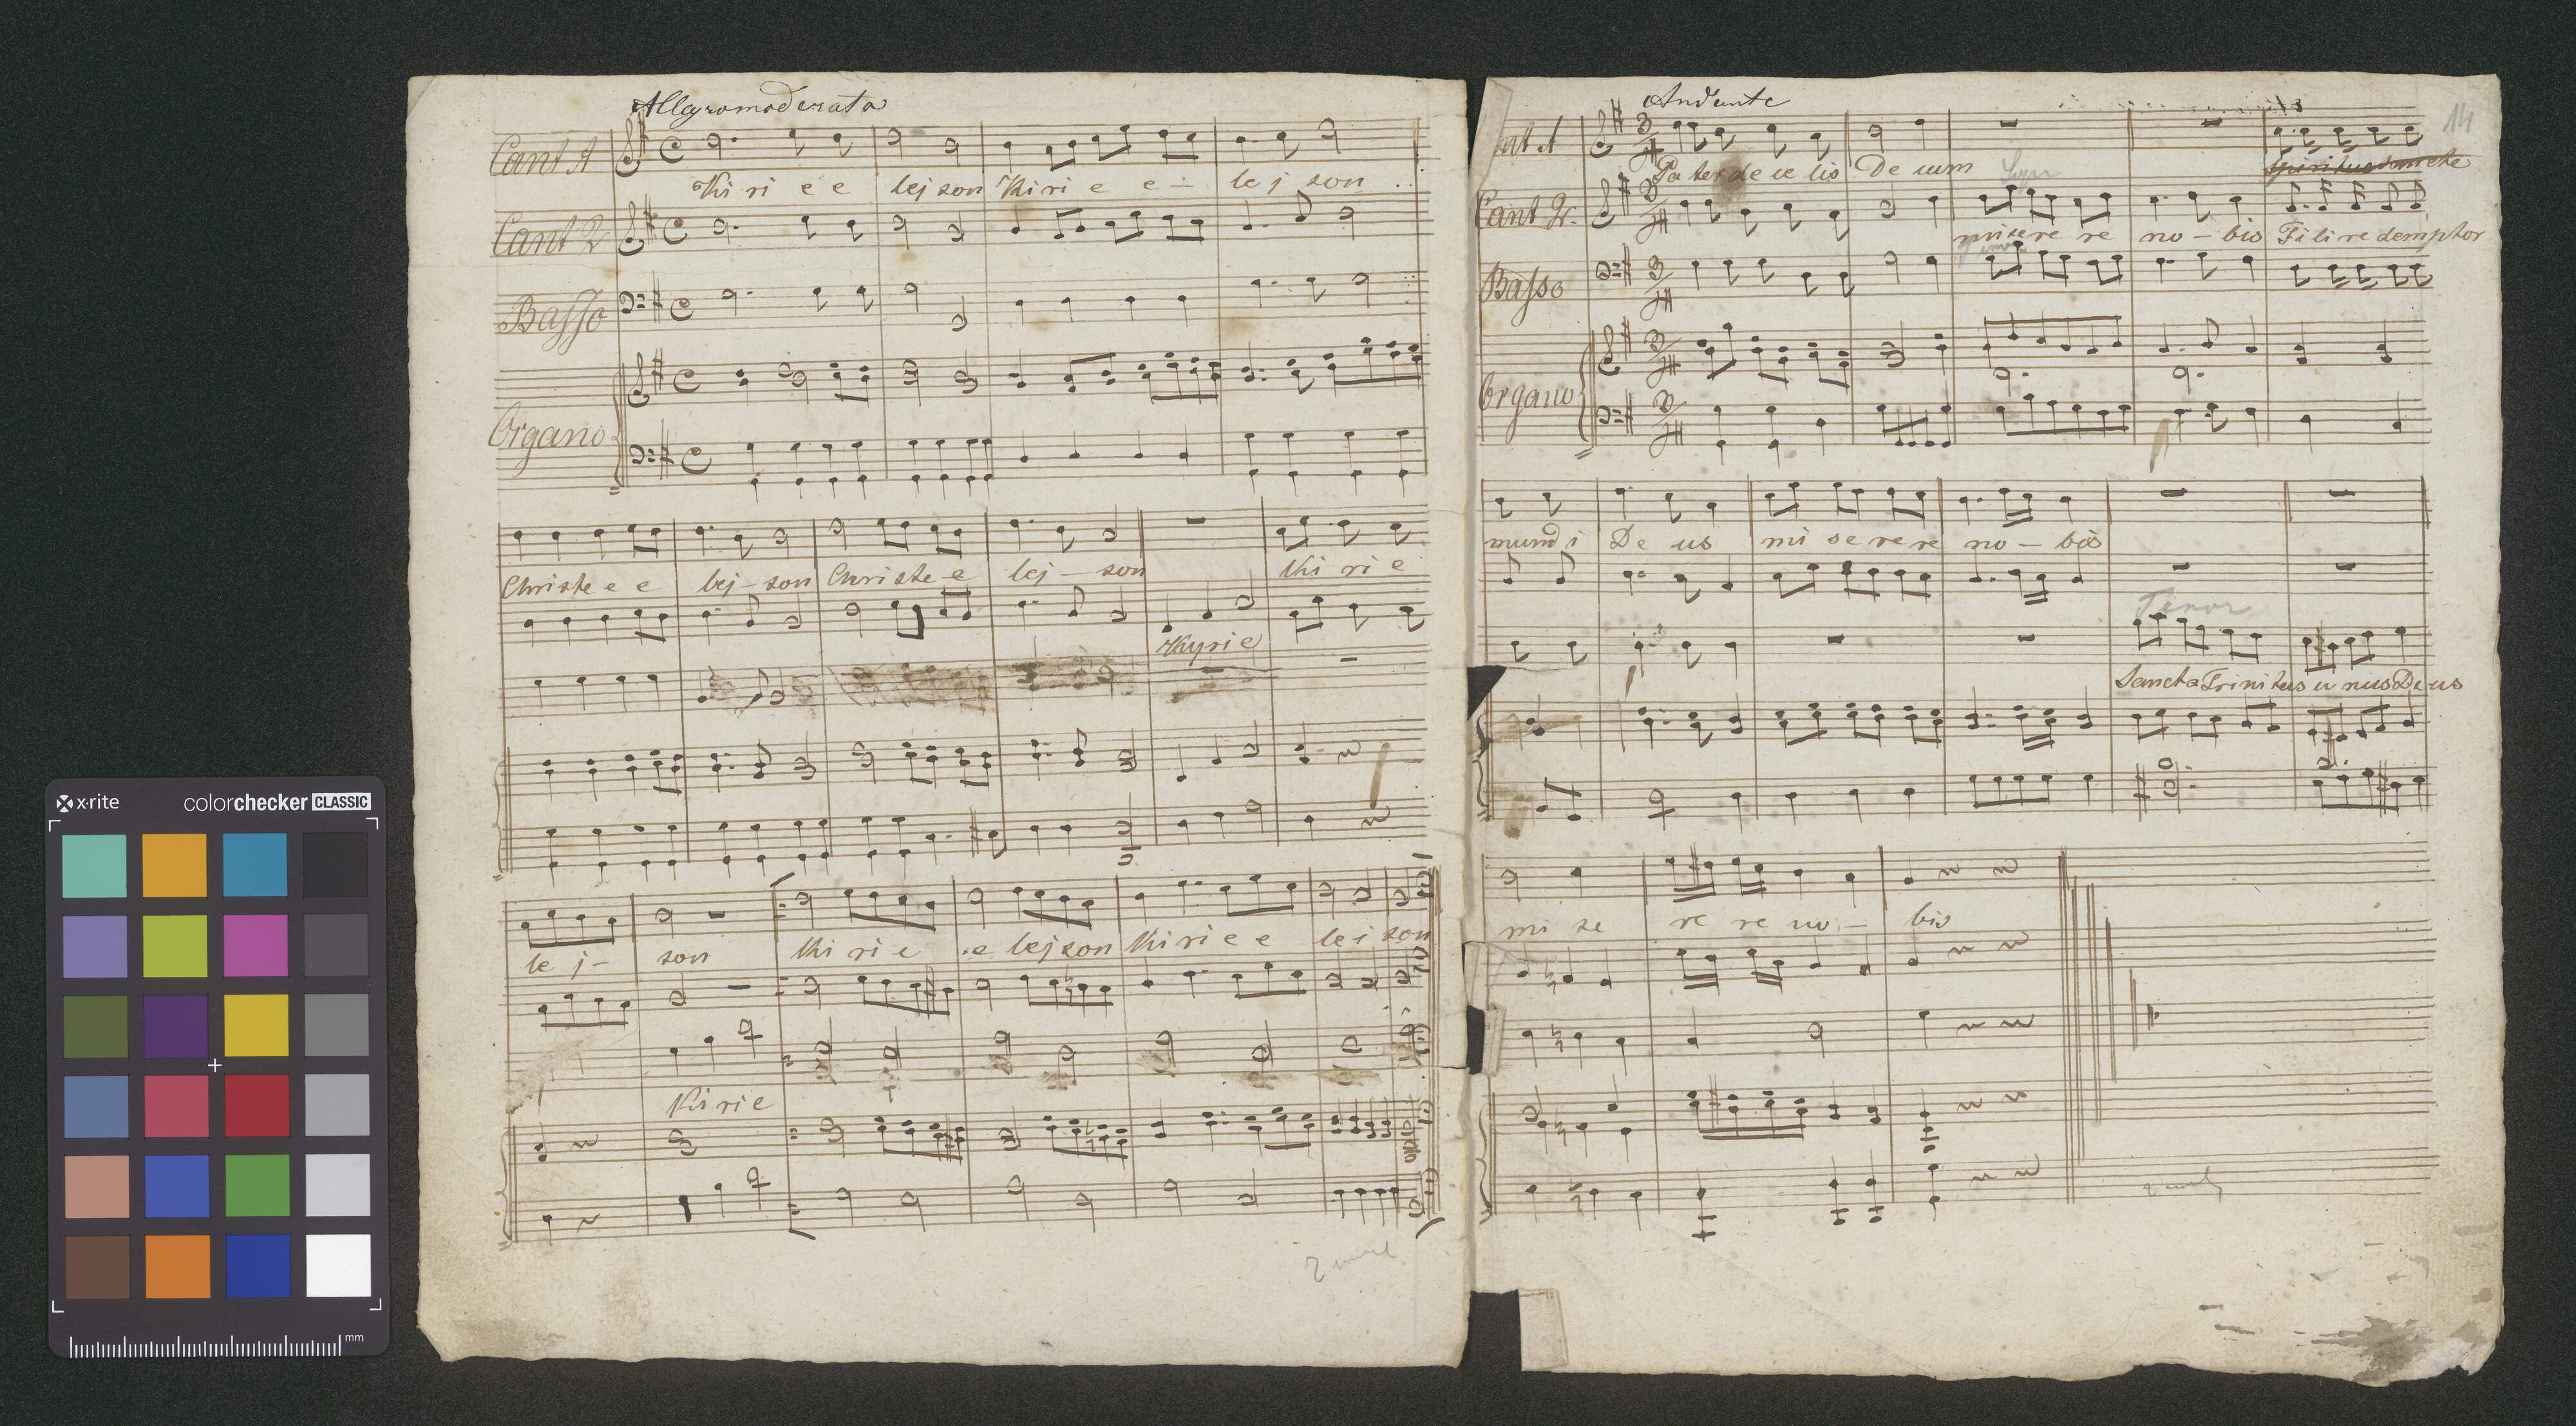 Allegromoderato
Cant 1
Kiri e e lejson Kiri e e - lej son
Cant 2
Basso
Organo
Christe e e lej - son Christe - e lej - son Kiri e
Kyrie
le j - son Kiri e e lejson Kiri e e lei son
Kirie
Andante
14
Cant 1
Pater de ce lis De uum
Spiritus sancte
Cant 2.
Supr
misere re no - bis Fili redemptor
Basso
Organo
mundi De us mi se re re no - bis
Tenor
Sancta Trinitas u nus Deus
mi se re re no - bis
x·rite colorchecker CLASSIC
mm